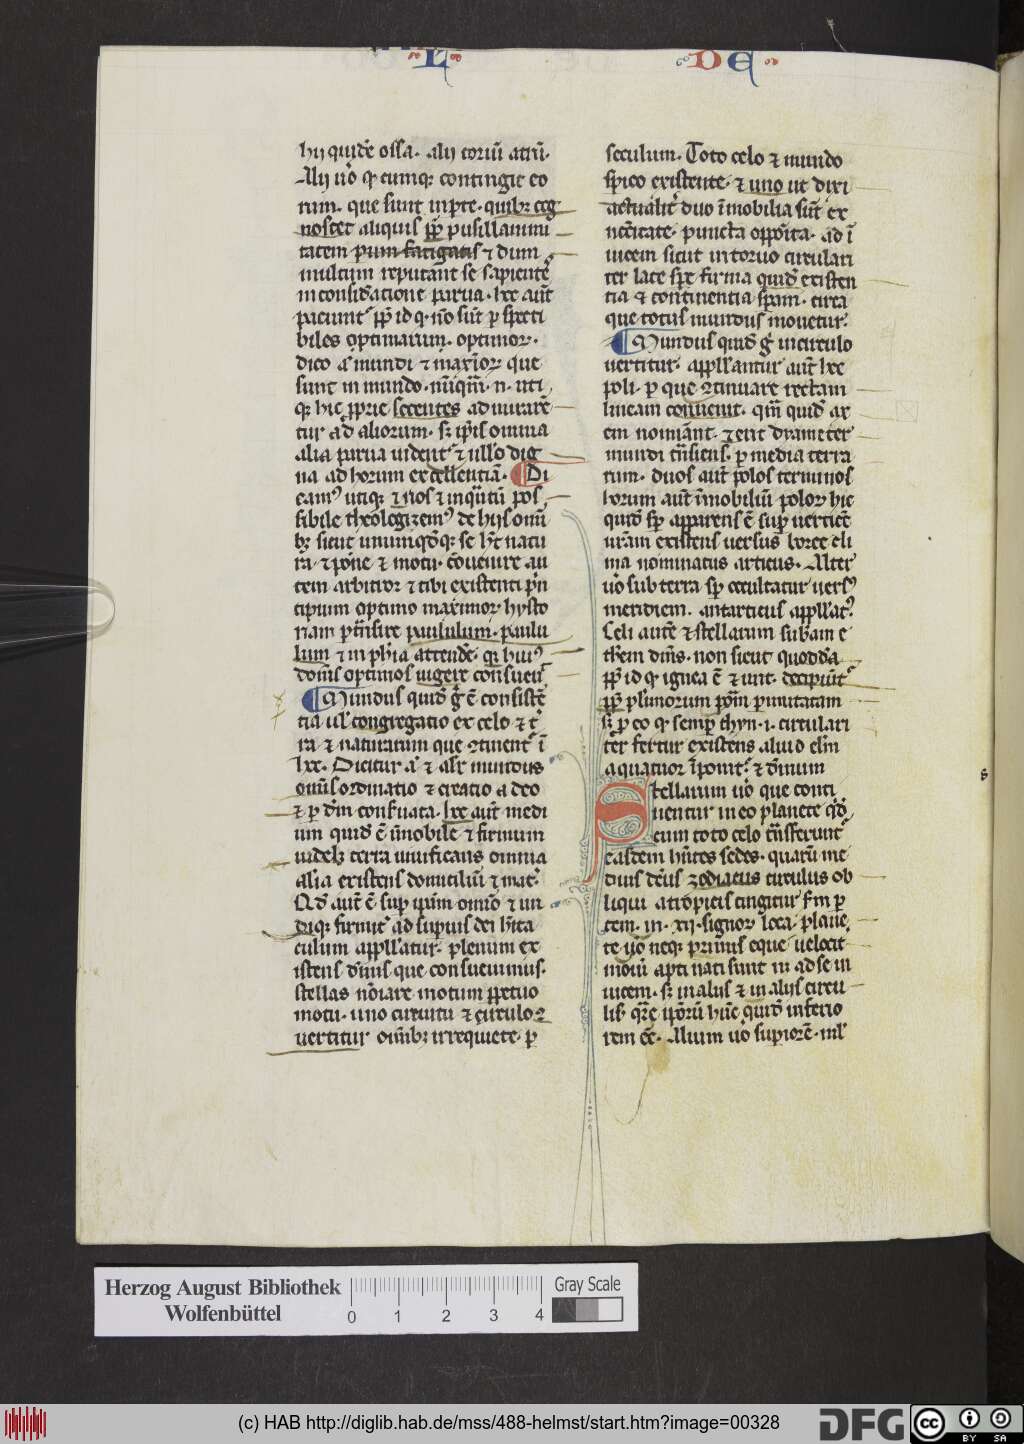 L DE
hij quidē ossa. alij coriū atrū.
Alij ūo q̄ cumq; contingit eo
rum. que sunt in pte. quib; cog
noscet aliquis pp̄ pusillanimi
tatem pum fatigatis ⁊ dum
multum reputant se sapientē
inconsid̄atione parua. hec aut̄
paciunt᷑ pp̄ id q̄. nō sūt p specti
biles optimarum. optimoꝝ.
dico a᷑ mundi ⁊ maxīoꝝ que
sunt in mundo. nūiqm̄. n. uti
q; hic pprie scientes admirarē
tur ad aliorum. s; ip̄is omnia
alia parua uident᷑ ⁊ nullo dig
na ad horum excellentiā. Di
camꝰ utiq; ⁊ nos ⁊ inq̄ntū pos
sibile theologizemꝰ de hijs om̄i
b; sicut unumq̄dq; se h̄t natu
ra ⁊ pōne ⁊ motu. cōuenire au
tem arbitror ⁊ tibi existenti p̄n
cipium optimo maximoꝝ hysto
riam p trāsire paululum. paulu
lum ⁊ in ph̄ia attendē. q; huiꝰ
domīs optimos uigere consueuit᷑
Mundus quid̄ g̊ ē consistē
tia ul᷑ congregatio ex celo ⁊ t᷑
ra ⁊ naturarum que ꝯtinent᷑ ī
hec. Dicitur a᷑ ⁊ alr̄ mundus
omīs ordinatio ⁊ creatio a deo
⁊ p dm̄ conseruata. hec aut̄ medi
um quid̄ ē īmobile ⁊ firmum
uidel; terra uiuificans omnia
alia existens domicilium ⁊ mat᷑.
Qd̄ aut̄ ē sup ipm̄ omīo ⁊ un
diq; firmit᷑ ad supius dei h̄ita
culum appll'atur. plenum ex
istens diuīs que consueuimus.
stellas nōiare motum ppetuo
motu. uno circuitu ⁊ circuloꝝ
uertitur omīb; irrequiete. p
seculum. Toto celo ⁊ mundo
spico existente. ⁊ uno ut dixi
actualit᷑ duo īmobilia sūt ex
nccitate. puncta opposita. ad ī
uicem sicut in toruo circulari
ter late spe firma quid̄ existen
tia ⁊ continentia spam. circa
que totus mundus mouetur.
Mundus quid̄ g̊ in circulo
uertitur. appll'antur aut̄ hec
poli. p que ꝯtinuare rectam
lineam conuenit. qm̄ quid̄ ax
em nomīant. ⁊ erit diameter
mundi trāsiens. p media terra
rum. duos aut̄ polos terminos
horum aut̄ īmobiliū poloꝝ hic
quid̄ sp̄ apparens ē sup uerticē
nr̄am existens uersus boree cli
ma nominatus articus. Alter
ūo sub terra sp̄ occultatur uersꝰ
meridiem. antarticus appll'at᷑.
Celi autē ⁊ stellarum sub̄am e
them dīns. non sicut quoddā
pp̄ id q̄ ignea ē ⁊ unt. decipiūt᷑
pp̄ plurinorum pōm pmutatam
s; p eo q̄ semp thyn. i. circulari
ter fertur existens aliud elm̄
a quatuor īponit᷑. ⁊ diuinum
Stellarum ūo que conti
nentur in eo planete q̄d̄
cum toto celo trāsferunt᷑
easdem hn̄tes sedes. quarū me
dius dc̄us zodiacus circulus ob
liqui a tropicis cingitur fm̄ p
tem. in. xij. signoꝝ loca. plane
te ūo neq; primis eque uelocit᷑
moūi apti nati sunt n; ad se in
uicem. s; in alijs ⁊ in alijs circu
lis. q̄re ipōrū hūc quid̄ inferio
rem ēē. Alium ūo supiorē. ml᷑
Herzog August Bibliothek
Wolfenbüttel
0 1 2 3 4
Gray Scale
(c) HAB http://diglib.hab.de/mss/488-helmst/start.htm?image=00328
DFG
cc BY SA